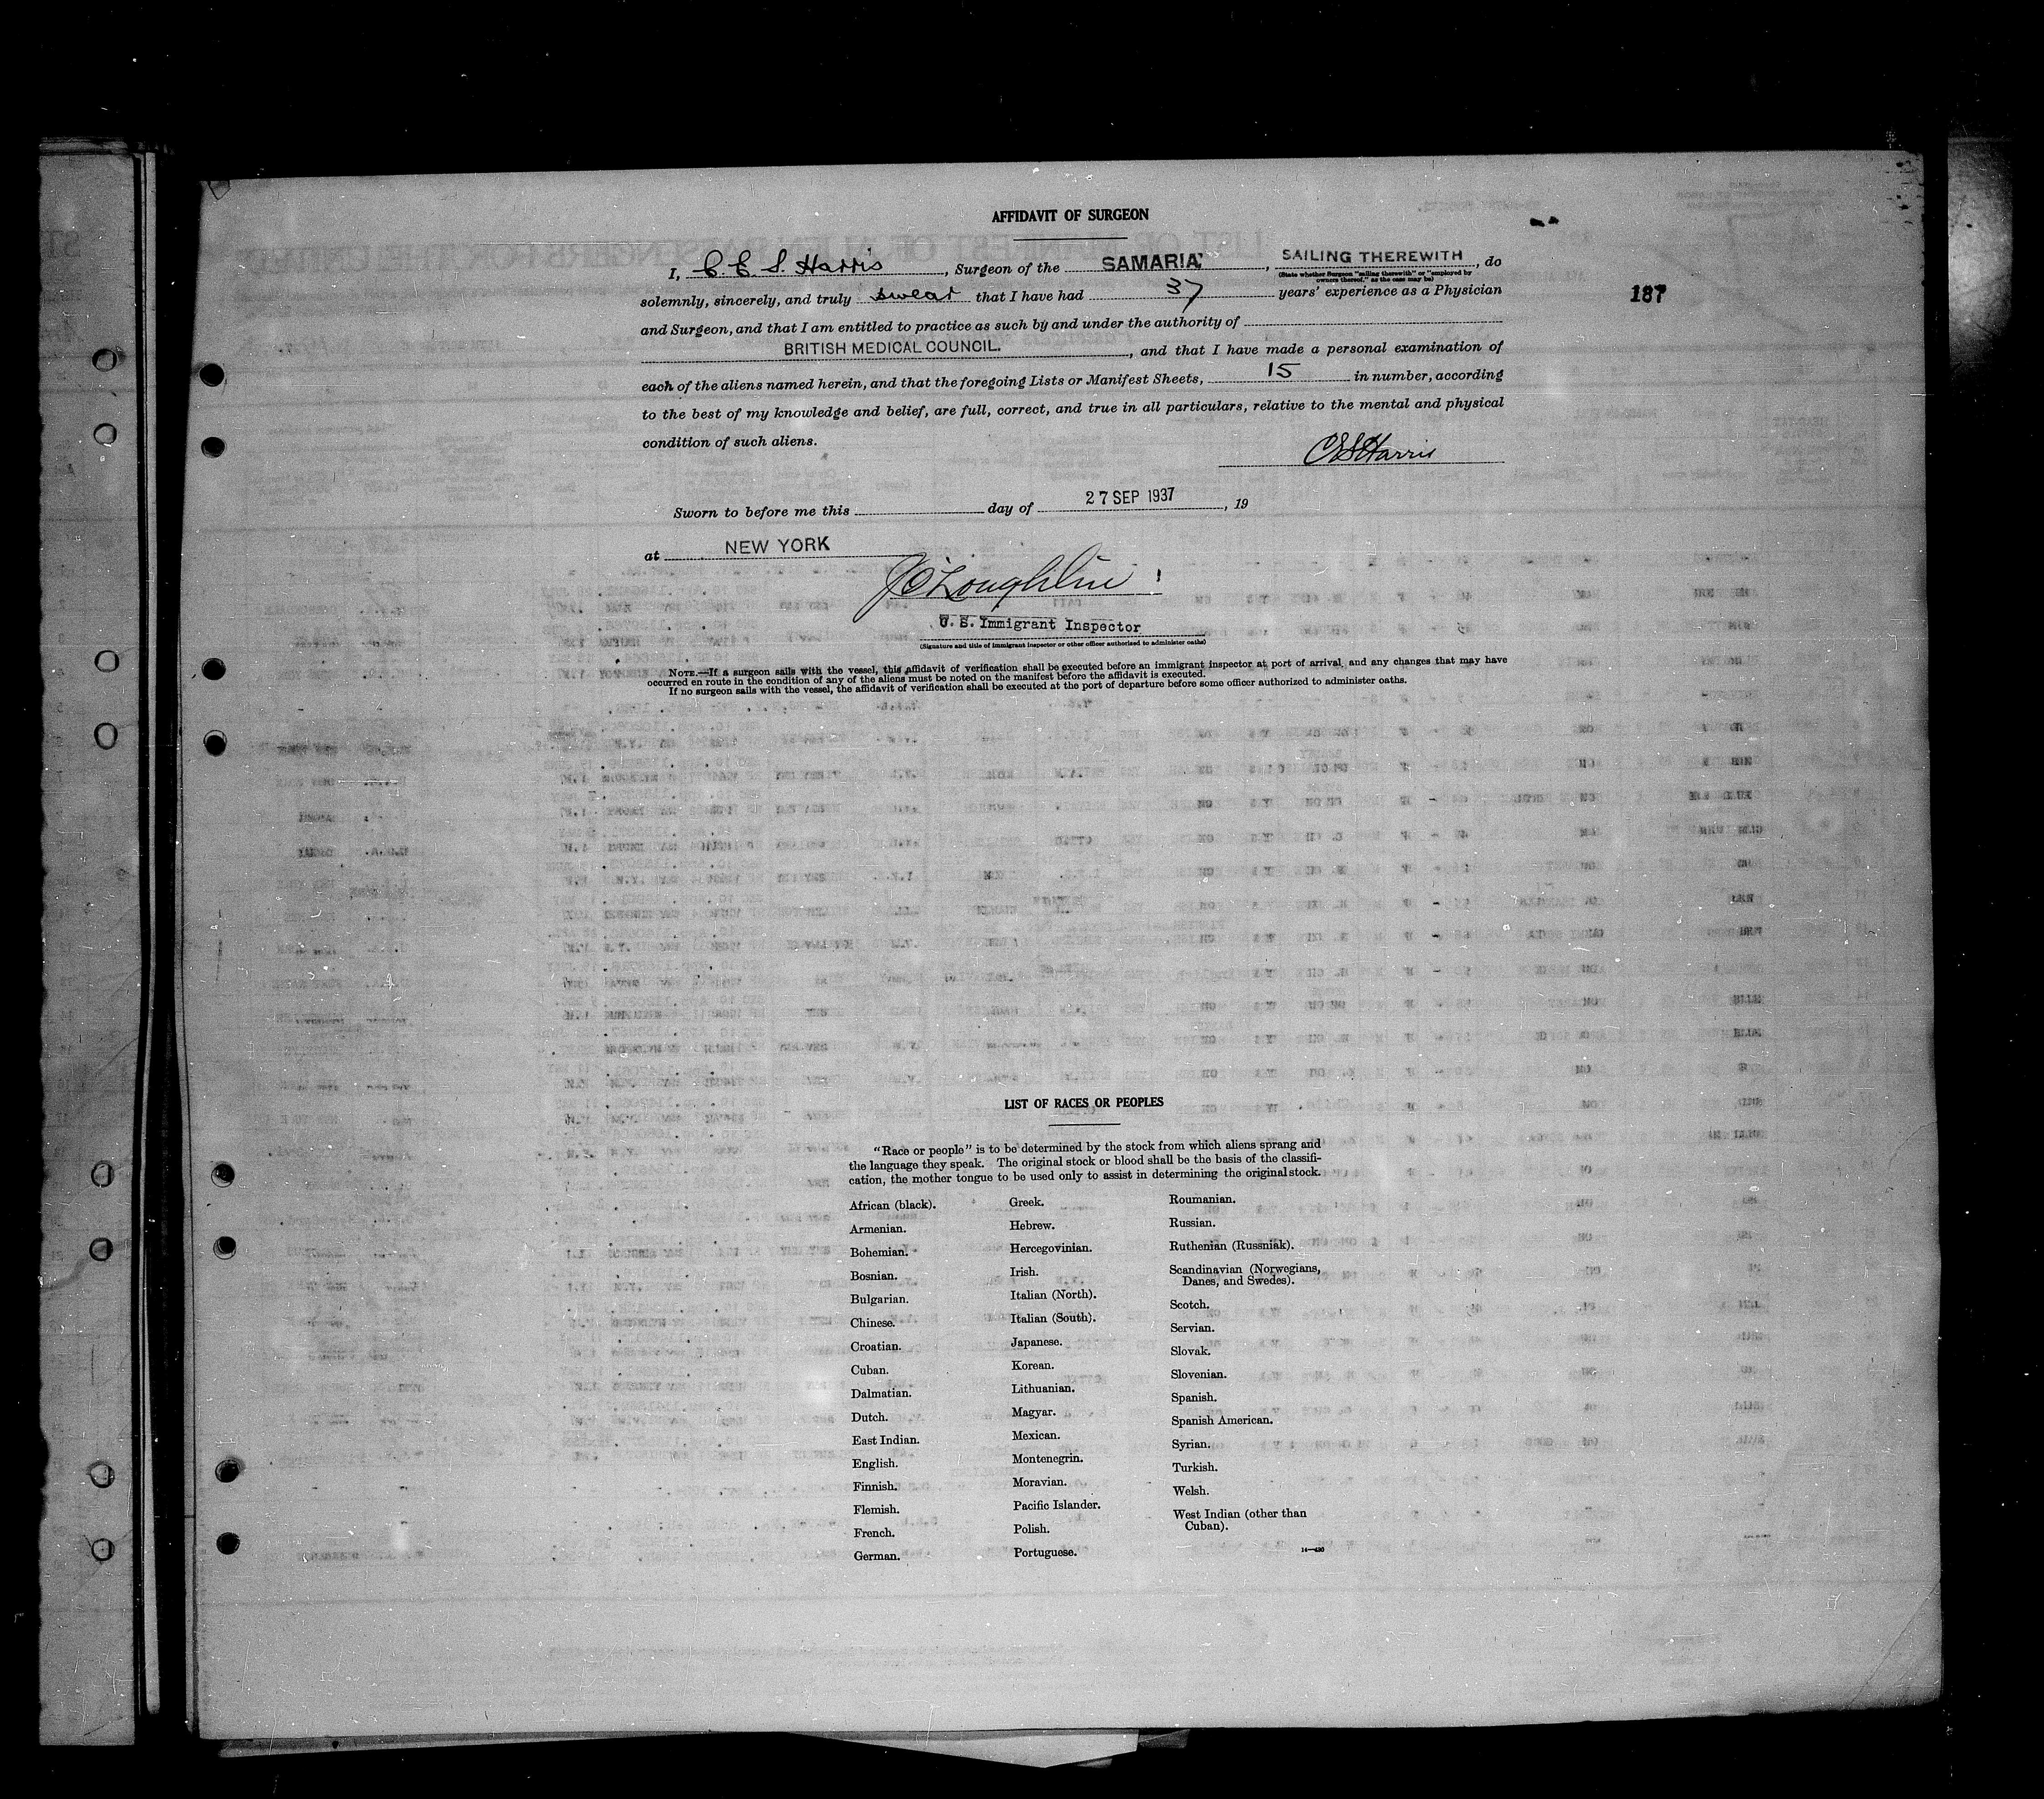 AFFIDAVIT OF SURGEON
I, C. E. S. Harris, Surgeon of the SAMARIA, SAILING THEREWITH, do
(State whether Surgeon "sailing therewith" or "employed by
owners thereof," as the case may be)
solemnly, sincerely, and truly swear that I have had 37 years' experience as a Physician
187
and Surgeon, and that I am entitled to practice as such by and under the authority of
BRITISH MEDICAL COUNCIL., and that I have made a personal examination of
each of the aliens named herein, and that the foregoing Lists or Manifest Sheets, 15 in number, according
to the best of my knowledge and belief, are full, correct, and true in all particulars, relative to the mental and physical
condition of such aliens.
CESHarris
Sworn to before me this day of 27 SEP 1937, 19
at NEW YORK
J O'Loughlin
U. S. Immigrant Inspector
(Signature and title of immigrant inspector or other officer authorized to administer oaths)
NOTE.—If a surgeon sails with the vessel, this affidavit of verification shall be executed before an immigrant inspector at port of arrival, and any changes that may have
occurred en route in the condition of any of the aliens must be noted on the manifest before the affidavit is executed.
If no surgeon sails with the vessel, the affidavit of verification shall be executed at the port of departure before some officer authorized to administer oaths.
LIST OF RACES OR PEOPLES
"Race or people" is to be determined by the stock from which aliens sprang and
the language they speak. The original stock or blood shall be the basis of the classifi-
cation, the mother tongue to be used only to assist in determining the original stock.
African (black).
Armenian.
Bohemian.
Bosnian.
Bulgarian.
Chinese.
Croatian.
Cuban.
Dalmatian.
Dutch.
East Indian.
English.
Finnish.
Flemish.
French.
German.
Greek.
Hebrew.
Hercegovinian.
Irish.
Italian (North).
Italian (South).
Japanese.
Korean.
Lithuanian.
Magyar.
Mexican.
Montenegrin.
Moravian.
Pacific Islander.
Polish.
Portuguese.
Roumanian.
Russian.
Ruthenian (Russniak).
Scandinavian (Norwegians,
Danes, and Swedes).
Scotch.
Servian.
Slovak.
Slovenian.
Spanish.
Spanish American.
Syrian.
Turkish.
Welsh.
West Indian (other than
Cuban).
14—430